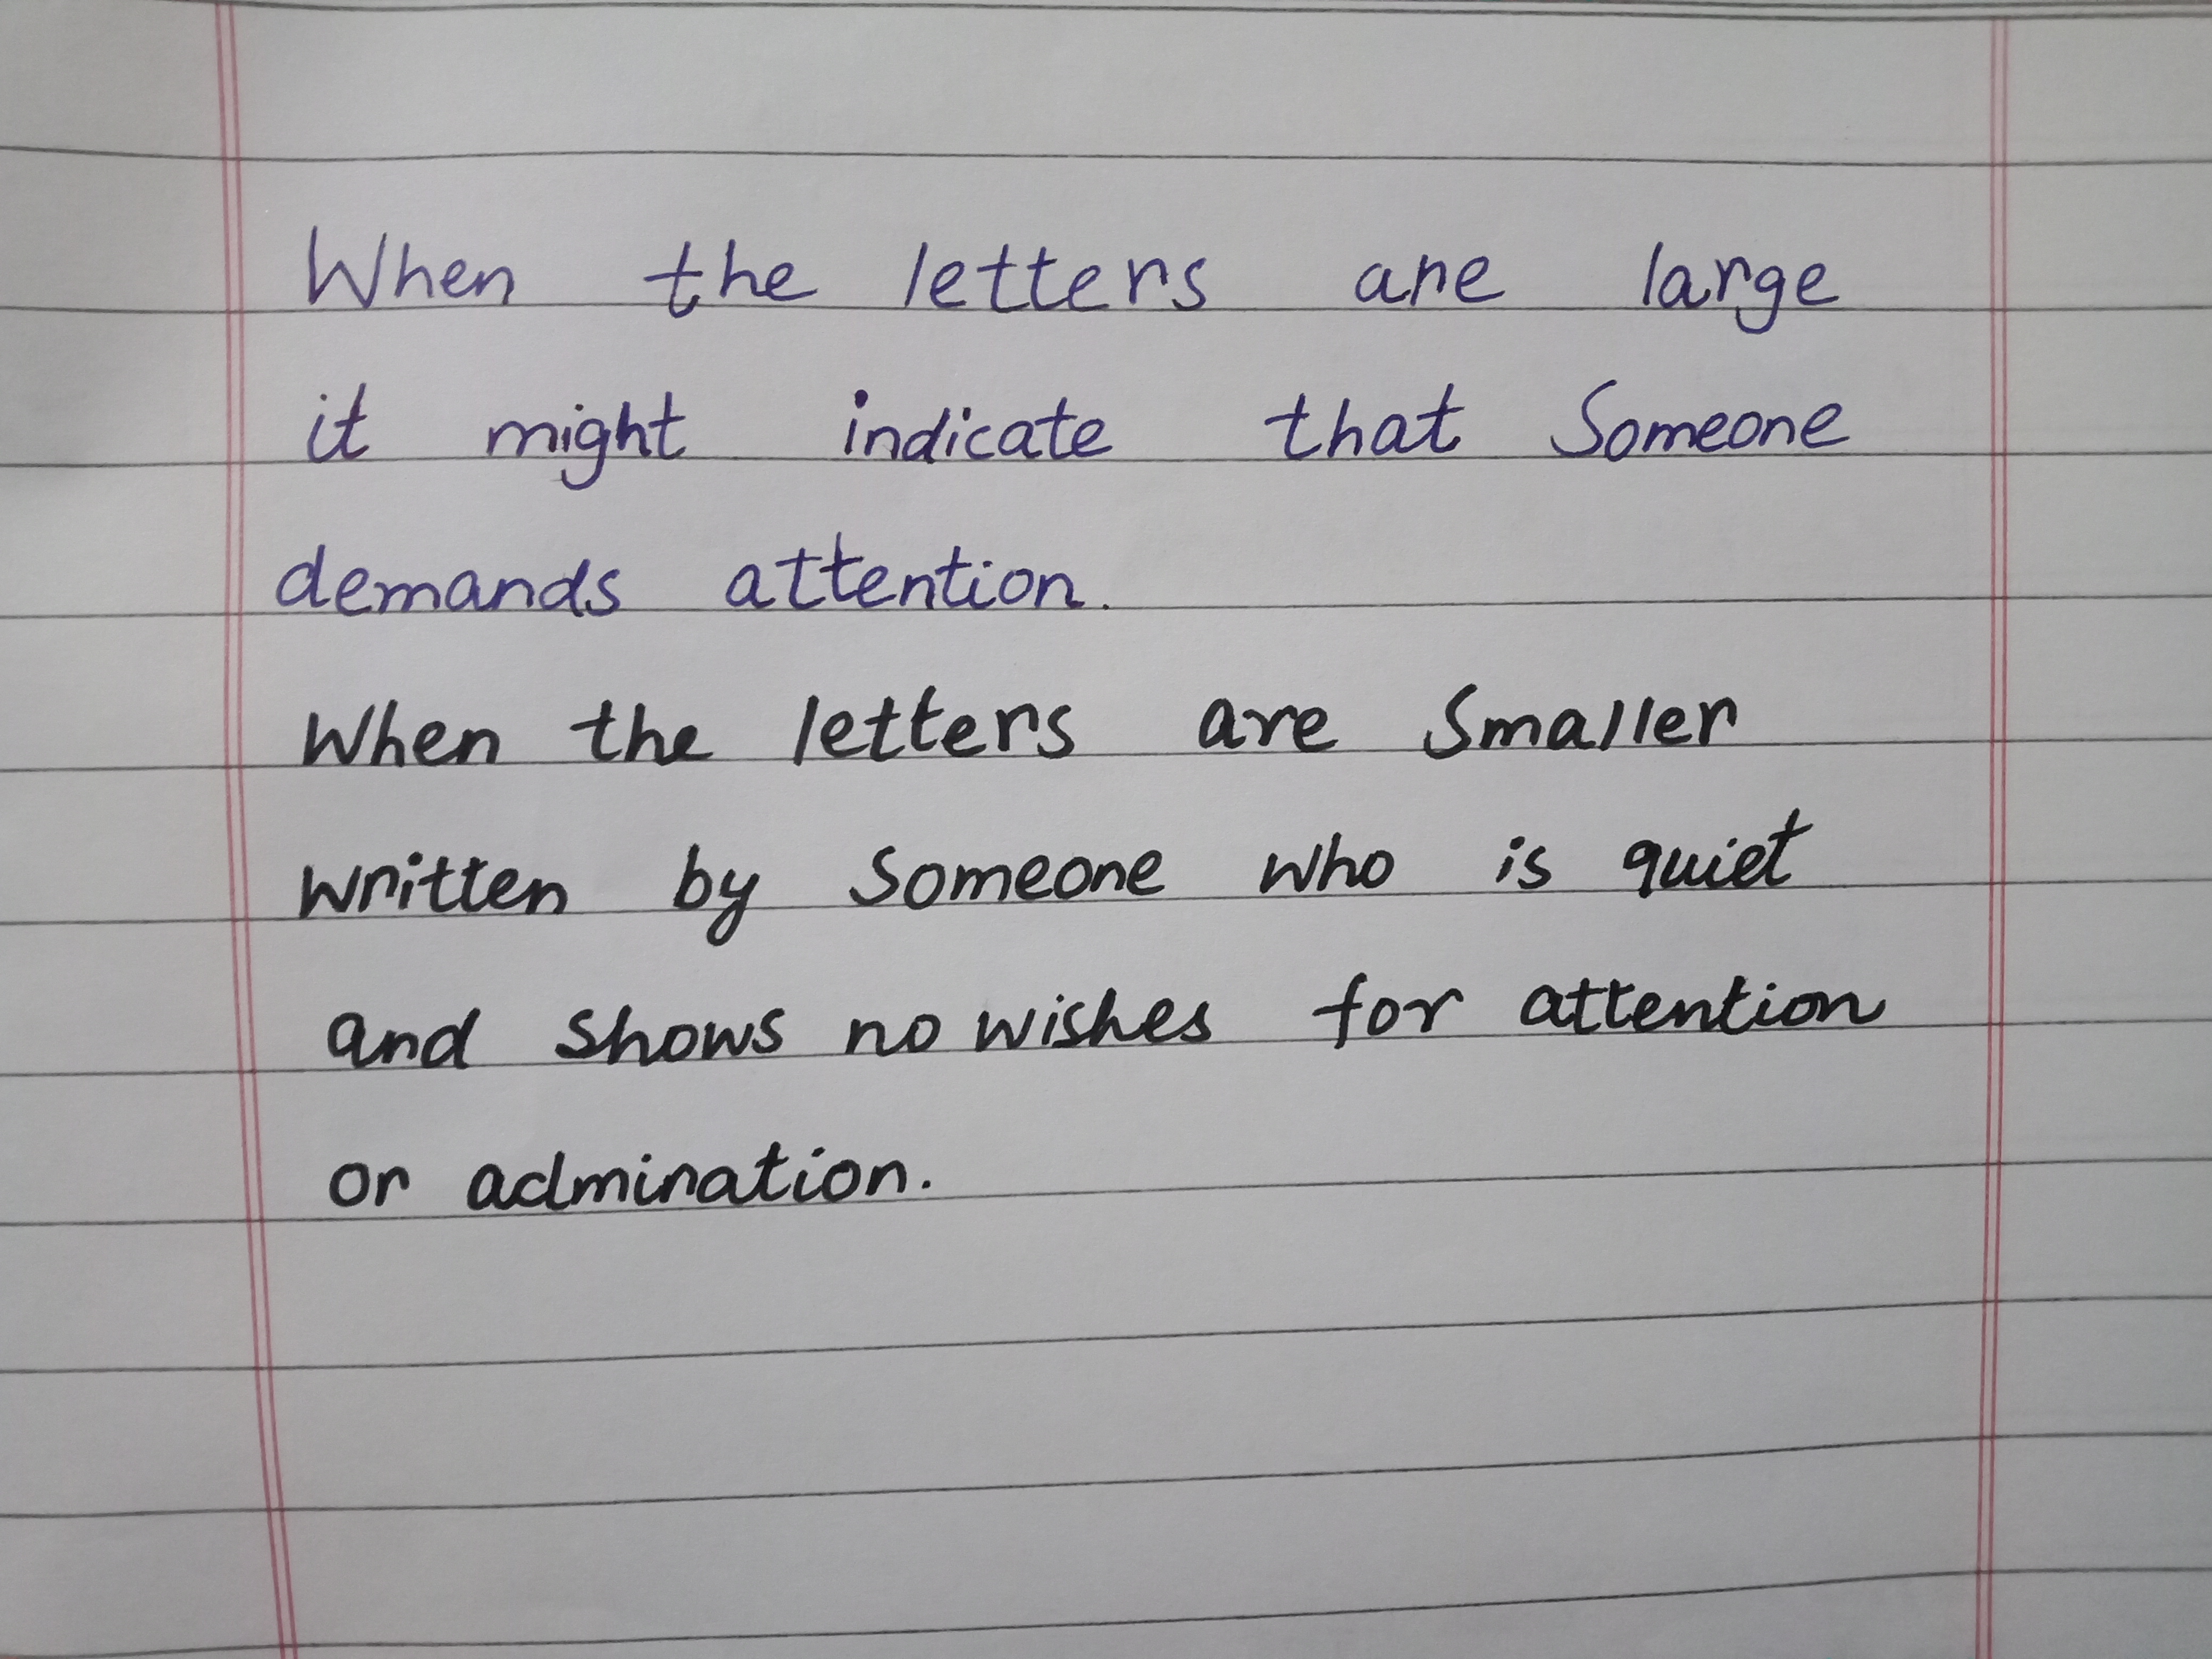 When the letters are large
it might indicate that Someone
demands attention.
When the letters are Smaller
written by Someone who is quiet
and shows no wishes for attention
or admiration.